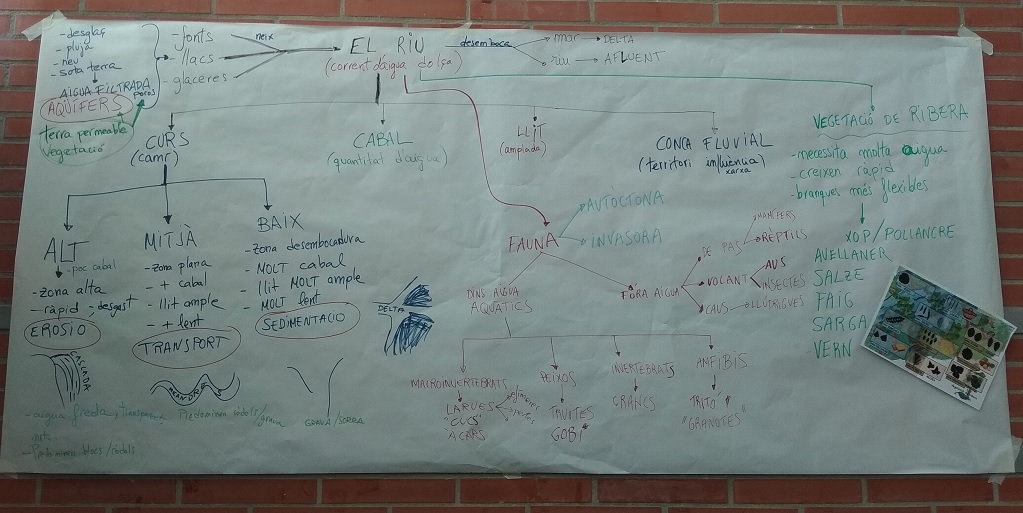 - desglaç
- pluja
- neu
- sota terra
AIGUA FILTRADA
poros
AQÜÍFERS
terra permeable
vegetació
- fonts
- llacs
- glaceres
neix
EL RIU
(corrent d'aigua dolça)
desemboca
mar → DELTA
riu → AFLUENT
CURS
(camí)
CABAL
(quantitat d'aigua)
LLIT
(ampiada)
CONCA FLUVIAL
(territori influència)
xarxa
VEGETACIÓ DE RIBERA
- necessita molta aigua
- creixen ràpid
- branques més flexibles
XOP/POLLANCRE
AVELLANER
SALZE
FAIG
SARGA
VERN
ALT
- poc cabal
- zona alta
- ràpid, desgast
EROSIÓ
CASCADA
MITJÀ
- zona plana
- + cabal
- llit ample
- + lent
TRANSPORT
MEANDRE
BAIX
- zona desembocadura
- MOLT cabal
- llit MOLT ample
- MOLT lent
SEDIMENTACIÓ
DELTA
- aigua freda, transparent
- Predominen blocs/còdols
Predominen còdols/grava
GRAVA/SORRA
FAUNA
AUTÒCTONA
INVASORA
DINS AIGUA
AQUÀTICS
FORA AIGUA
DE PAS
MAMÍFERS
RÈPTILS
VOLANT
AUS
INSECTES
CAUS → LLÚDRIGUES
MACROINVERTEBRATS
LARVES
"CUCS"
ÀCARS
PEIXOS
TRUITES
GOBI
INVERTEBRATS
CRANCS
AMFIBIS
TRITÓ
"GRANOTES"